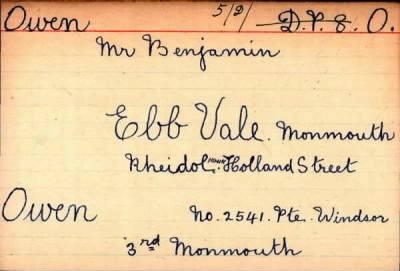 Owen 5/9/ D.P. 8. O.
Mr Benjamin
Ebb Vale. Monmouth
Rheidol House Holland Street
Owen No. 2541. Pte. Windsor
3rd Monmouth